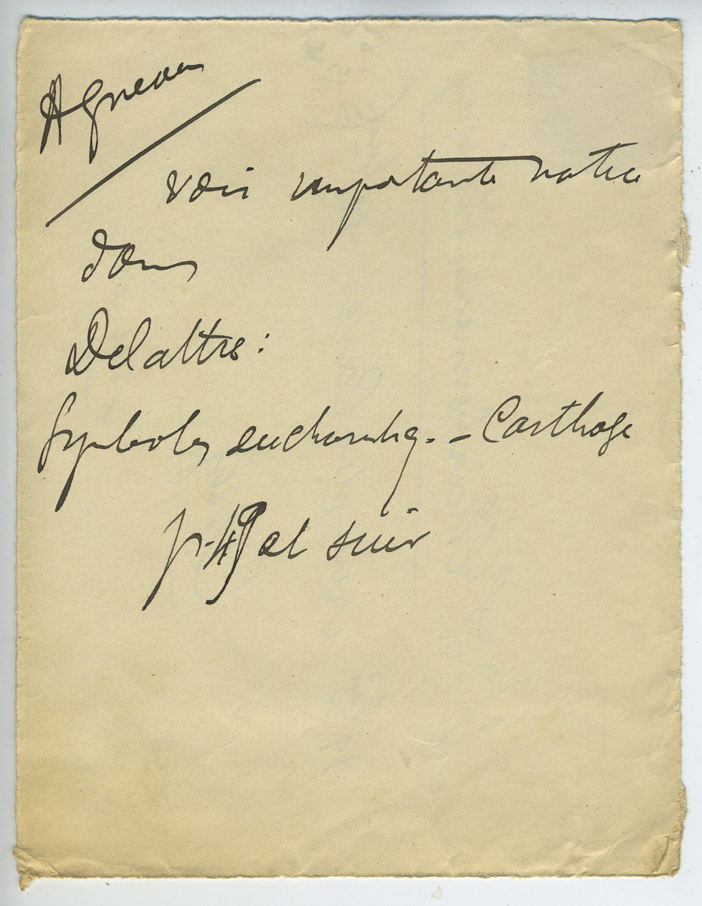 Agneau
voir importante notice
dans
Delattre:
Symboles eucharistiq. - Carthage
p. 49 et suiv